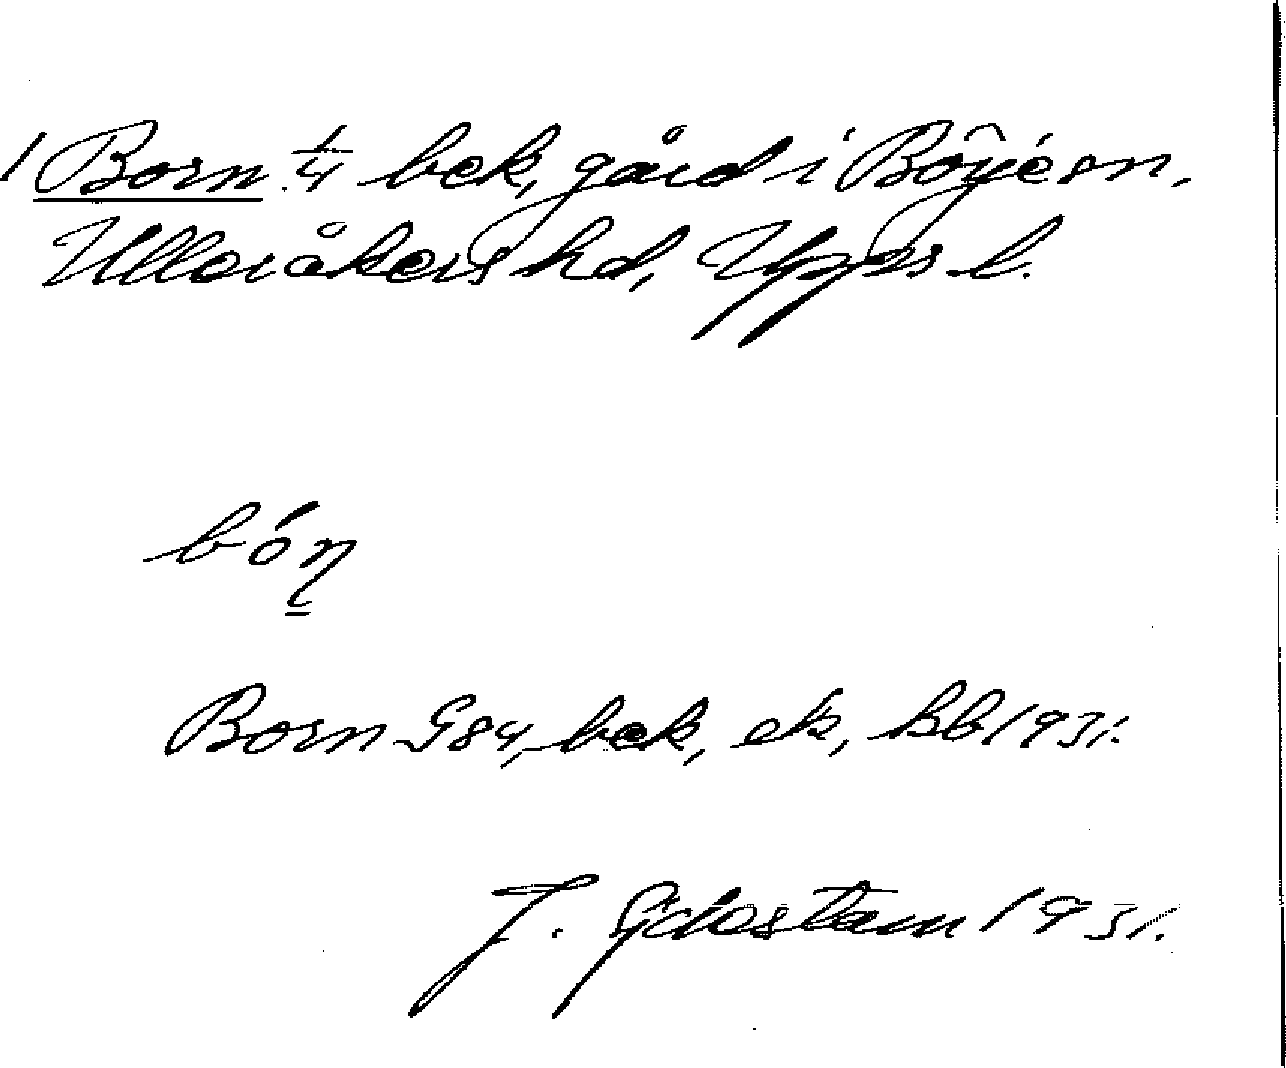 1 Born 1/4 bek, gård i Böjé sn,
Ulleråkers hd, Upps l.
bóη
Born G84, bek, ek, kb 1931.
J. Götlestam 1931.